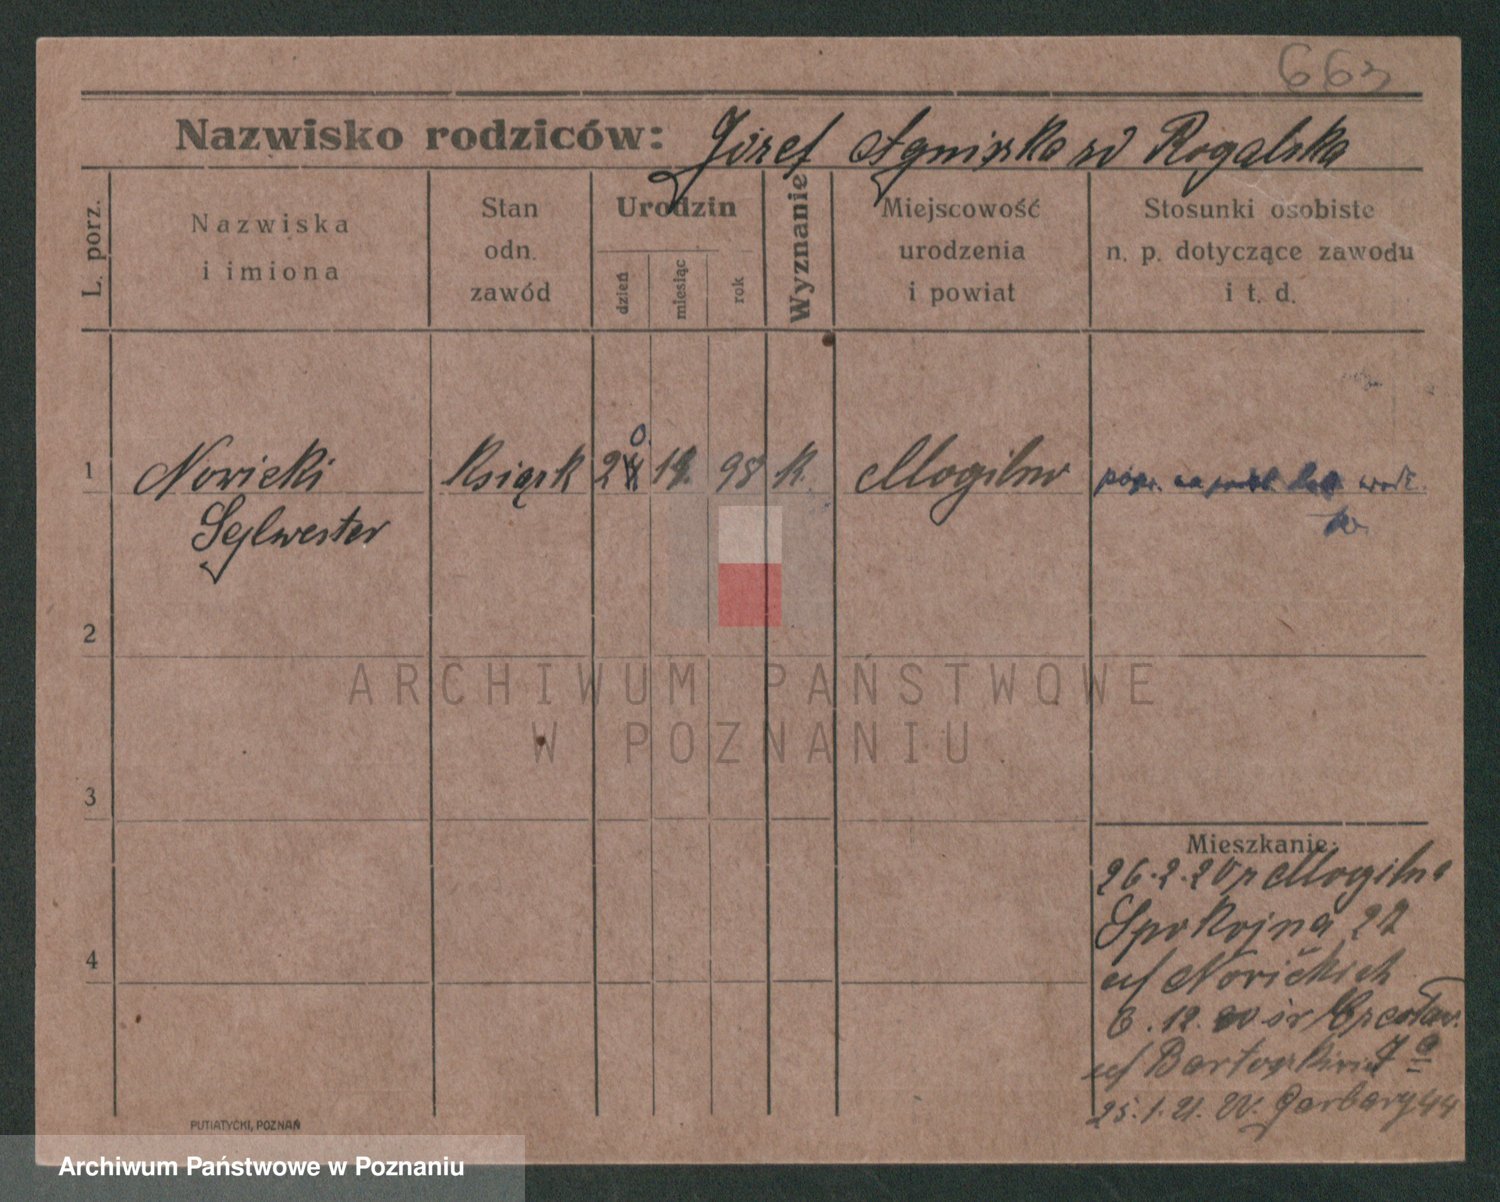 663
Nazwisko rodziców: Józef Agnieszka zd Rogalska
L. porz.
Nazwiska
i imiona
Stan
odn.
zawód
Urodzin
dzień
miesiąc
rok
Wyznanie
Miejscowość
urodzenia
i powiat
Stosunki osobiste
n. p. dotyczące zawodu
i t. d.
1
Nowicki
Sylwester
98
k.
Mogilno
popr. na
2
ARCHIWUM PAŃSTWOWE
W POZNANIU
3
4
Mieszkanie:
26.2.20 p Mogilno
Spokojna 22
Nowickich
6.12.20 św
7a
25.1.21. W. Garbary 44
PUTIATYCKI, POZNAŃ
Archiwum Państwowe w Poznaniu